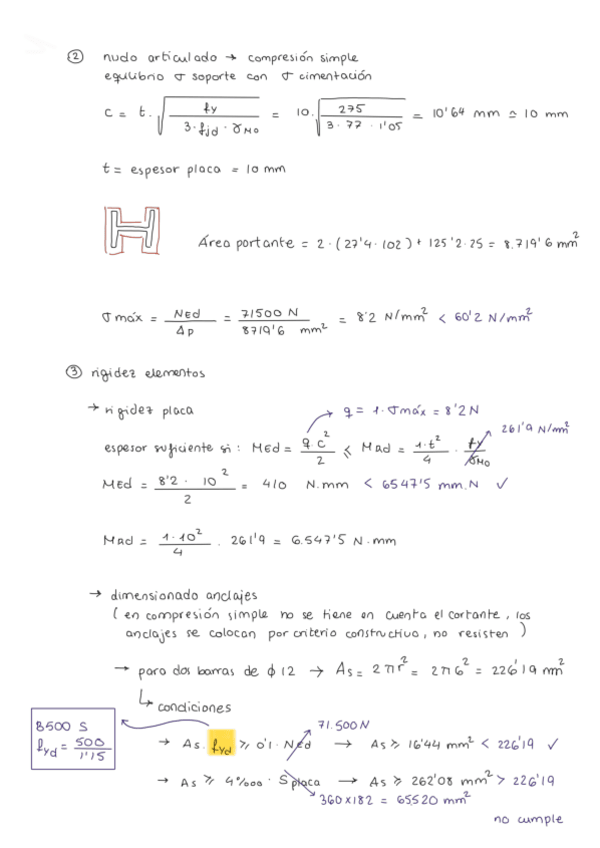 ② nudo articulado → compresión simple
equilibrio σ soporte con σ cimentación
c = t · √( fy / 3 · fjd · γM0 ) = 10 · √( 275 / 3 · 77 · 1'05 ) = 10'64 mm ≃ 10 mm
t = espesor placa = 10 mm
Área portante = 2 · (27'4 · 102) + 125'2 · 25 = 8.719'6 mm²
σ máx = NEd / Ap = 71500 N / 8719'6 mm² = 8'2 N/mm² < 60'2 N/mm²
③ rigidez elementos
→ rigidez placa
q = 1 · σ máx = 8'2 N
261'9 N/mm²
espesor suficiente si : MEd = q c² / 2 ≤ Mad = 1·t² / 4 · fy / γM0
MEd = 8'2 · 10² / 2 = 410 N.mm < 6547'5 mm.N ✓
Mad = 1·10² / 4 · 261'9 = 6.547'5 N·mm
→ dimensionado anclajes
( en compresión simple no se tiene en cuenta el cortante, los
anclajes se colocan por criterio constructivo, no resisten )
→ para dos barras de ϕ 12 → As = 2πr² = 2π6² = 226'19 mm²
↳ condiciones
71.500 N
B500 S
fyd = 500 / 1'15
→ As · fyd ≥ 0'1 · NEd → As ≥ 16'44 mm² < 226'19 ✓
→ As ≥ 4‰ · Splaca → As ≥ 262'08 mm² > 226'19
360 x 182 = 65520 mm²
no cumple